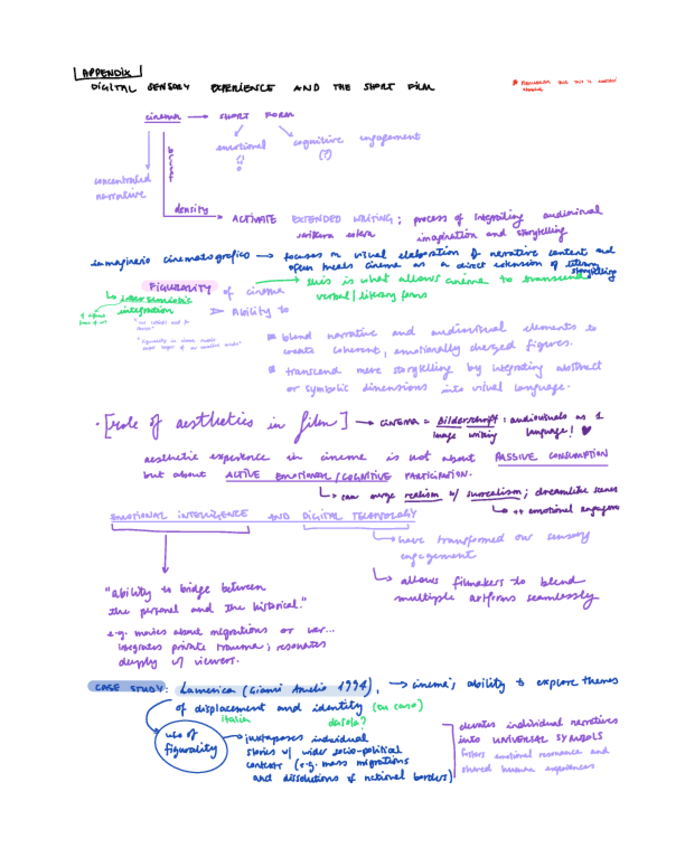 [APPENDIX]
DIGITAL SENSORY EXPERIENCE AND THE SHORT FILM
cinema → SHORT FORM
emotional
cognitive engagement
(?)
concentrated
narrative
density
ACTIVATE EXTENDED WRITING; process of integrating audiovisual
scrittura estesa imagination and storytelling
immaginario cinematografico → focuses on visual elaboration of narrative content and
often treats cinema as a direct extension of literary
storytelling
FIGURALITY of cinema → this is what allows cinema to transcend
verbal/literary forms
↳ intersemiotic
integration
➢ Ability to
blend narrative and audiovisual elements to
create coherent, emotionally charged figures.
transcend mere storytelling by integrating abstract
or symbolic dimensions into visual language.
• [role of aesthetics in film] → CINEMA = Bilderschrift: audiovisuals as 1
image writing language! ♥
aesthetic experience in cinema is not about PASSIVE CONSUMPTION
but about ACTIVE EMOTIONAL/COGNITIVE PARTICIPATION.
↳ can merge realism w/ surrealism; dreamlike scenes
↳ ++ emotional engagement
EMOTIONAL INTELLIGENCE AND DIGITAL TECHNOLOGY
↳ have transformed our sensory
engagement
↳ allows filmakers to blend
multiple artforms seamlessly
"ability to bridge between
the personal and the historical."
e.g. movies about migrations or war...
integrates private trauma; resonates
deeply w/ viewers.
CASE STUDY: Lamerica (Gianni Amelio 1994), → cinema's ability to explore themes
of displacement and identity (tu caso)
italia
use of
figurality
→ juxtaposes individual
stories w/ wider socio-political
contexts (e.g. mass migrations
and dissolutions of national borders)
elevates individual narratives
into UNIVERSAL SYMBOLS
fosters emotional resonance and
shared human experiences